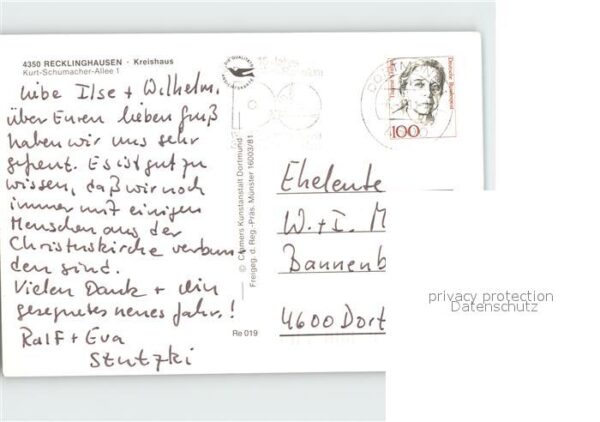 4350 RECKLINGHAUSEN · Kreishaus
Kurt-Schumacher-Allee 1
Liebe Ilse + Wilhelm,
über Euren lieben Gruß
haben wir uns sehr
gefreut. Es ist gut zu
wissen, daß wir noch
immer mit einigen
Menschen aus der
Christuskirche verbun-
den sind.
Vielen Dank + ein
gesegnetes neues Jahr!
Ralf + Eva
Stutzki
© Cramers Kunstanstalt Dortmund
Freigeg. d. Reg.-Präs. Münster 16003/81
Re 019
Deutsche Bundespost
100
Eheleute
W. + I. M
Bannenb
4600 Dort
privacy protection
Datenschutz